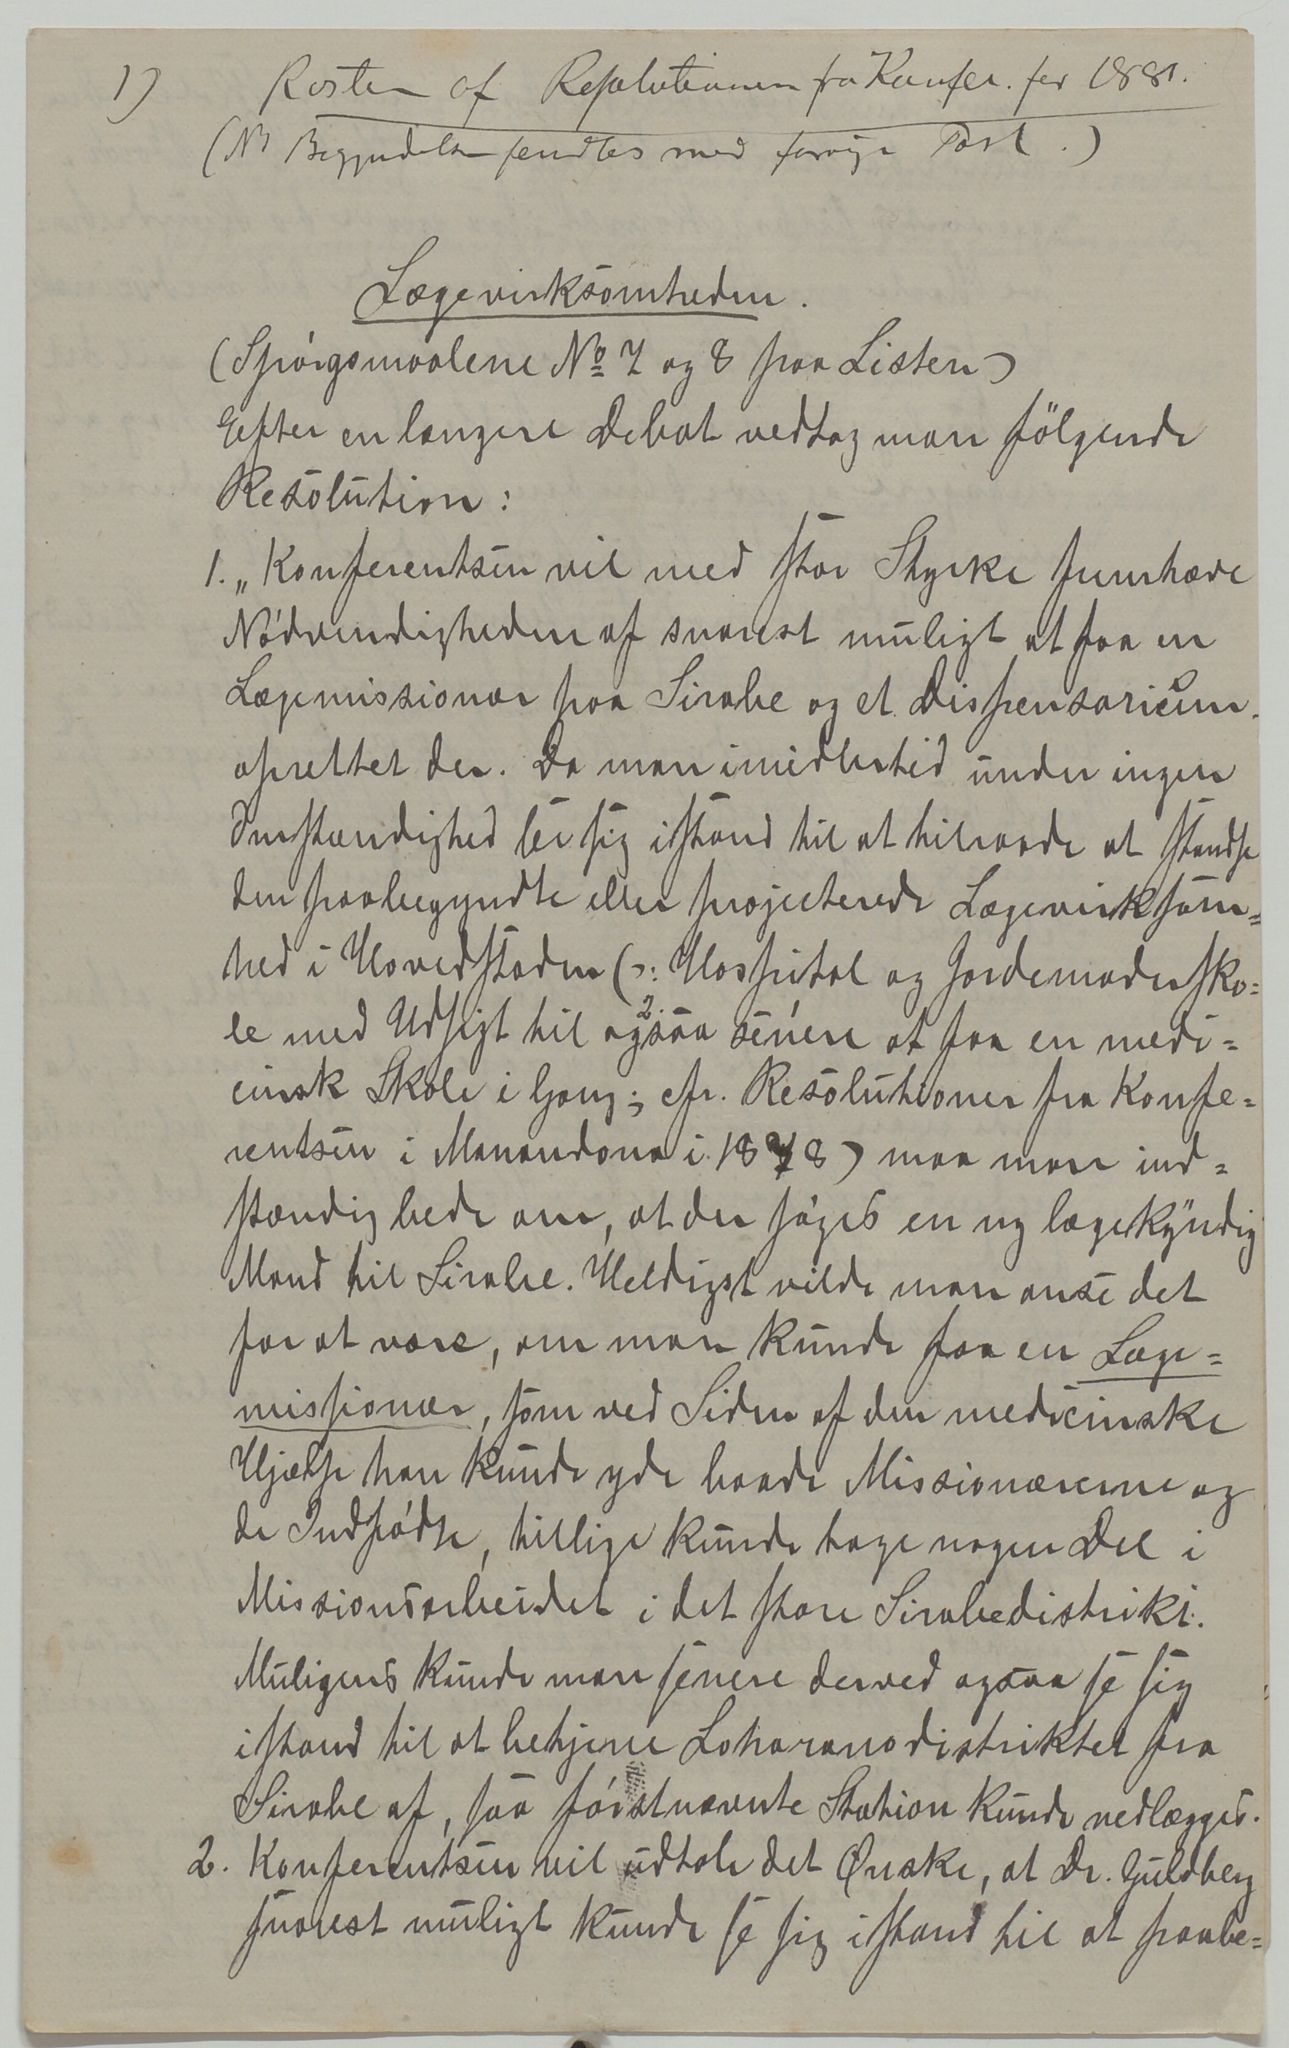 1) Resten af Resolutionen fra Konfer. for 1881.
(NB Begyndelsen sendtes med forrige Post.)
Lægevirksomheden.
(Spörgsmaalene No 7 og 8 paa Listen)
Efter en længere Debat vedtog man fölgende
Resolution:
1. „Konferentsen vil med stor Styrke fremhæve
Nödvendigheden af snarest muligt at faa en
Lægemissionær paa Sirabe og et Dispensarium
oprettet der. Da man imidlertid under ingen
Omstændighed ser sig istand til at tilraade at standse
den paabegyndte eller projecterede Lægevirksom=
hed i Hovedstaden (ɔ: Hospital og JordemoderSko=
le med Udsigt til ogsaa senere at faa en medi=
cinsk Skole i Gang; cfr. Resolutioner fra Konfe=
rentsen i Manandona i 1878) maa man ind=
stændig bede om, at der söges en ny lægekyndig
Mand til Sirabe. Heldigst vilde man anse det
for at være, om man kunde faa en Læge=
missionær, som ved Siden af den medicinske
Hjælp han kunde yde baade Missionærerne og
de Indfödte, tillige kunde tage nogen Del i
Missionsarbeidet i det store Sirabedistrikt.
Muligens kunde man senere derved ogsaa se sig
istand til at betjene Loharanodistriktet fra
Sirabe af, saa förstnævnte Station kunde nedlægges.
2. Konferentsen vil udtale det Ønske, at Dr. Guldberg
snarest muligt kunde se sig istand til at paabe=